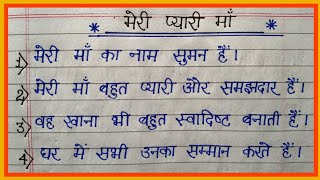 * मेरी प्यारी माँ *
1) मेरी माँ का नाम सुमन हैं।
2) मेरी माँ बहुत प्यारी और समझदार हैं।
3) वह खाना भी बहुत स्वादिष्ट बनाती हैं।
4) घर में सभी उनका सम्मान करते हैं।